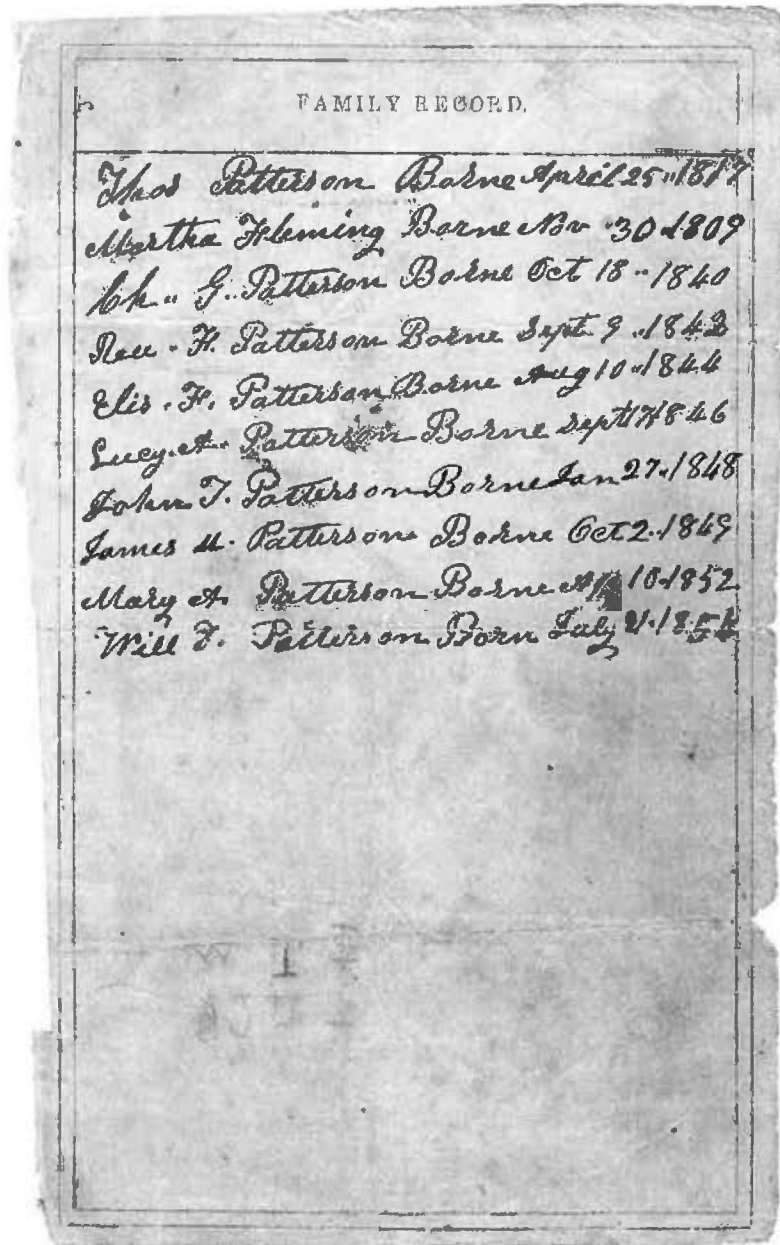 FAMILY RECORD.
Thos Patterson Borne April 25 1817
Martha Fleming Borne Nov 30 1809
Ch.. G. Patterson Borne Oct 18 .. 1840
F. Patterson Borne Sept 9 .. 1842
Elis. F. Patterson Borne Aug 10 .. 1844
Lucy. A. Patterson Borne Sept 1846
John T. Patterson Borne Jan 27. 1848
James M. Patterson Borne Oct 2. 1849
Mary A. Patterson Borne 10. 1852
Will F. Patterson Born July 21. 1854